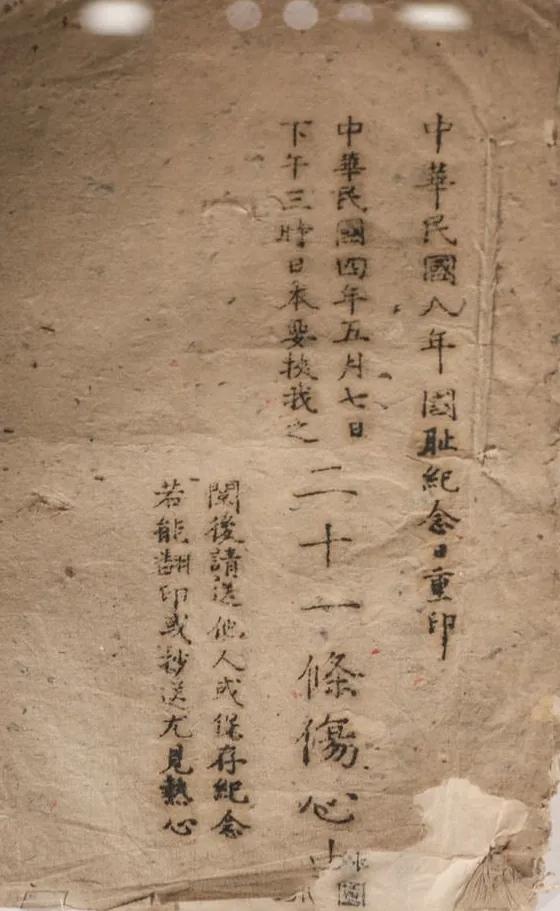 中華民國八年國耻紀念日重印
中華民國四年五月七日
下午三時日本要挾我之
二十一條傷心
閱後請送他人或保存紀念
若能翻印或鈔送尤見熱心